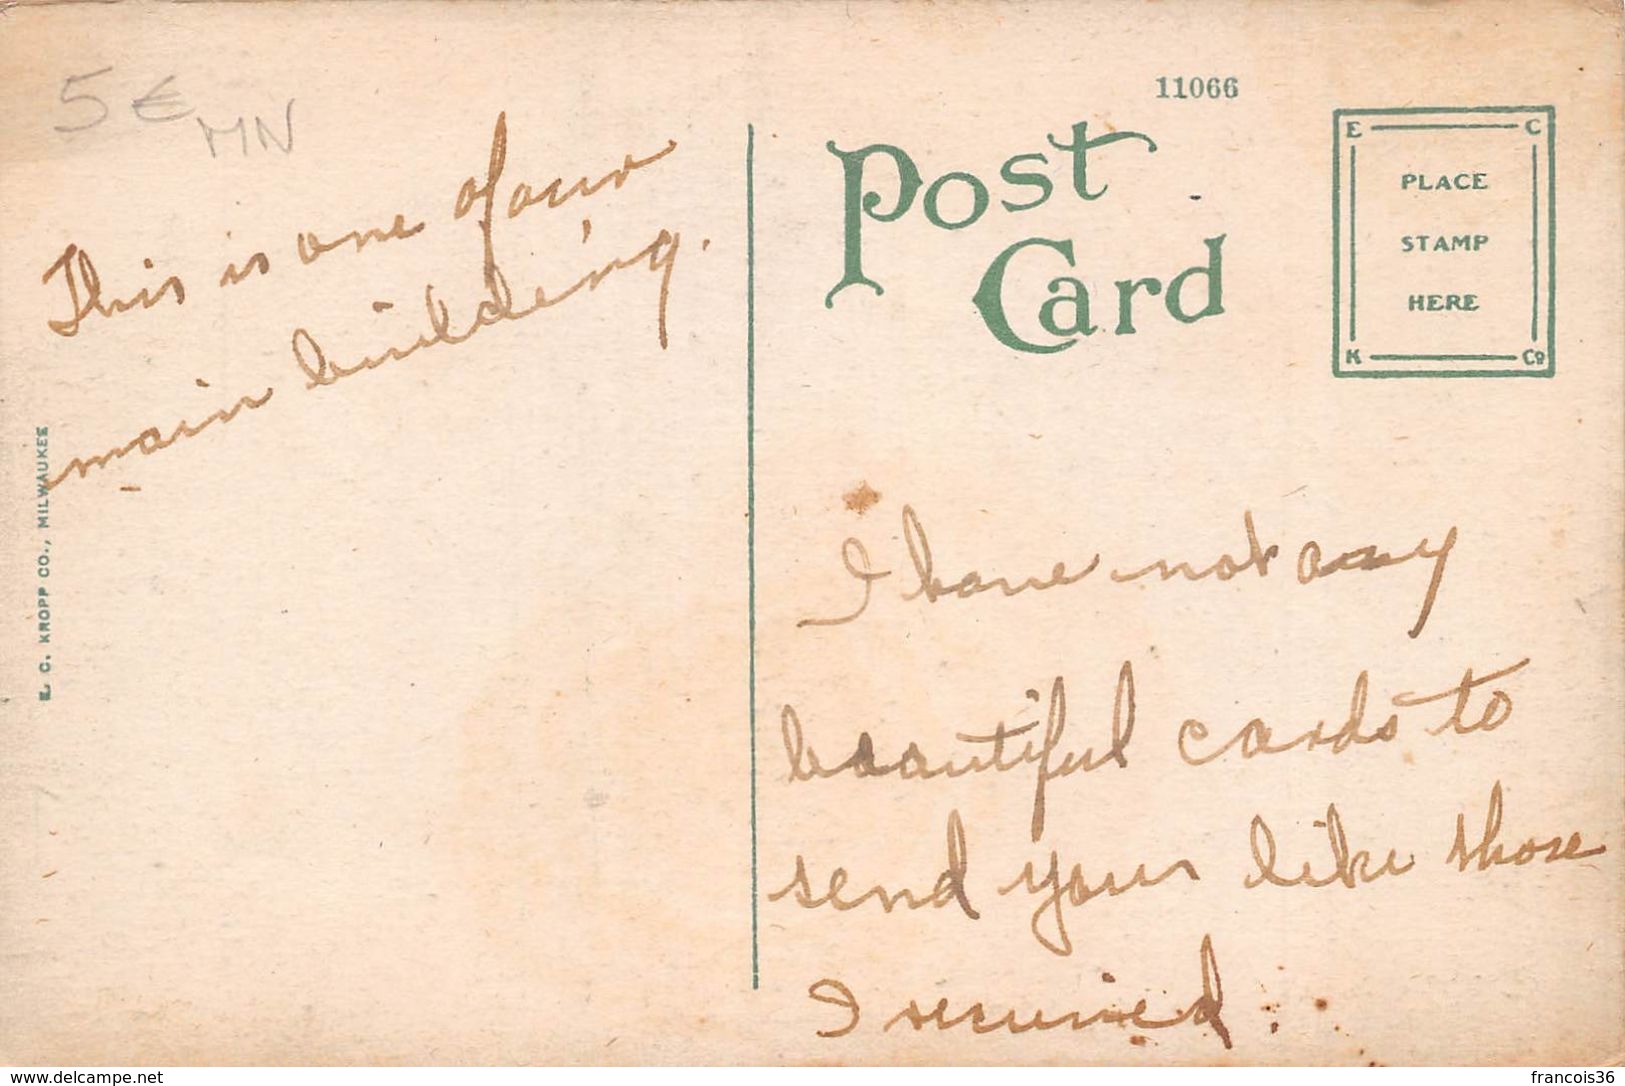 5 € MN
This is one of our
main building.
E. C. KROPP CO., MILWAUKEE
11066
Post
Card
E C
PLACE
STAMP
HERE
K Co
I have not any
beautiful cards to
send your like those
I received.
delcampe.net
francois36